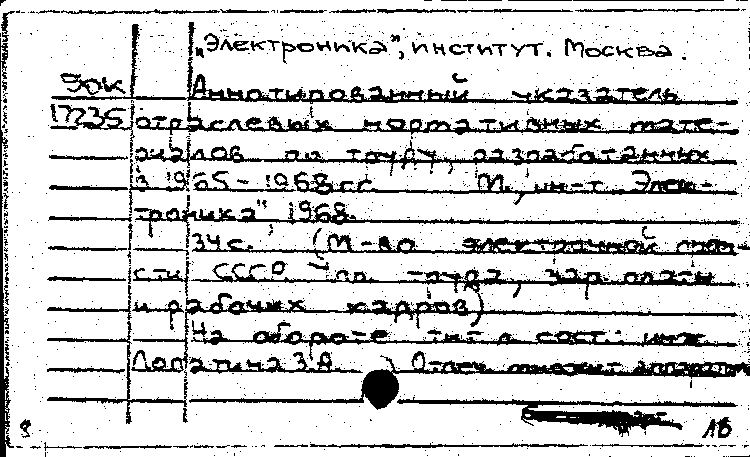 „Электроника", институт. Москва.
90к Аннотированный указатель
17235 отраслевых нормативных мате-
риалов по труду, разработанных
в 1965-1968гг. М., ин-т „Элек-
троника", 1968.
34 с. (М-во электронной пром-
сти СССР. Упр. труда, зар. платы
и рабочих кадров)
На обороте тит. л. сост.: инж.
Лопатина З.А. Отпеч. множит. аппаратом
18